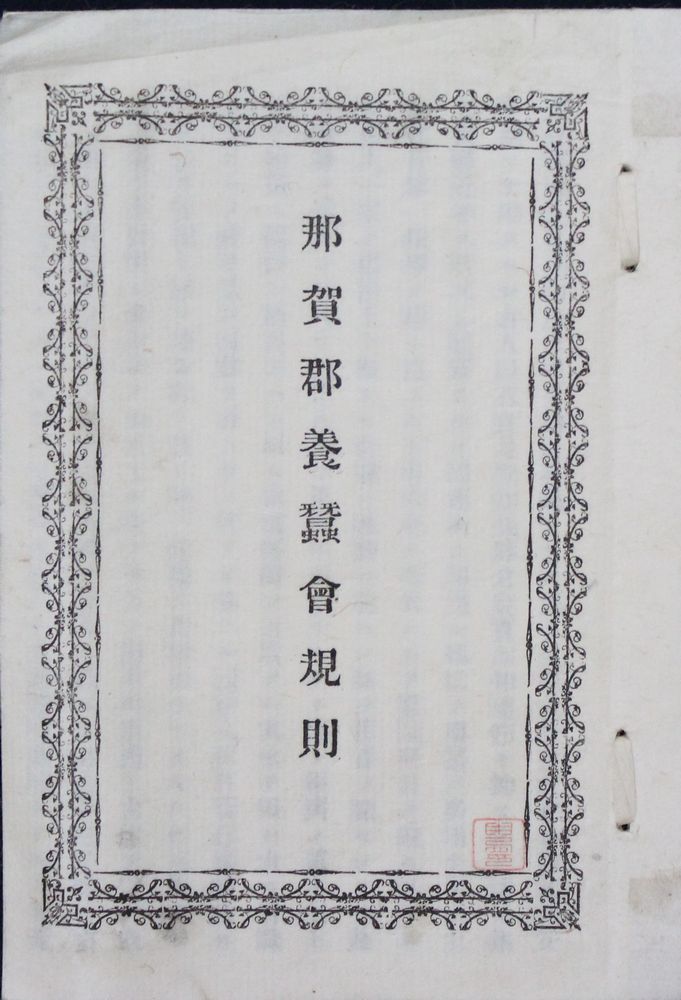 那賀郡養蠶會規則